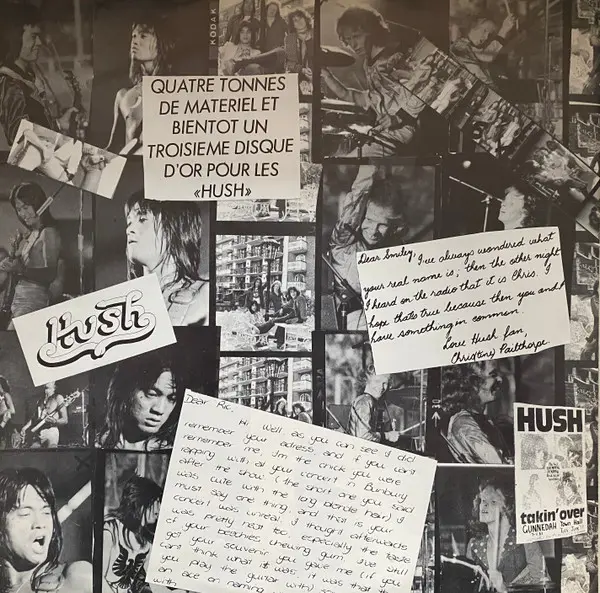 KODAK
QUATRE TONNES
DE MATERIEL ET
BIENTOT UN
TROISIEME DISQUE
D'OR POUR LES
«HUSH»
Dear Smiley, I've always wondered what
your real name is, then the other night
I heard on the radio that it is Chris. I
hope that's true because then you and I
have something in common.
Love Hush fan,
Chris(tine) Pailthorpe.
Hush
Dear Ric,
Hi well as you can see I did
remember your adress and if you can't
remember me I'm the chick you were
rapping with at your concert in Bunbury
after the show. (the short one you said
was cute with the long blonde hair) I
must say one thing and that is your
concert was unreal, I thought afterwards
was pretty hot too, especially the taste
of your beachies chewing gum. I've still
got your souvenir you gave me (if you
can't think what it was, it was that
you play the guitar with)
an ace on
with
HUSH
takin' over
GUNNEDAH Town Hall